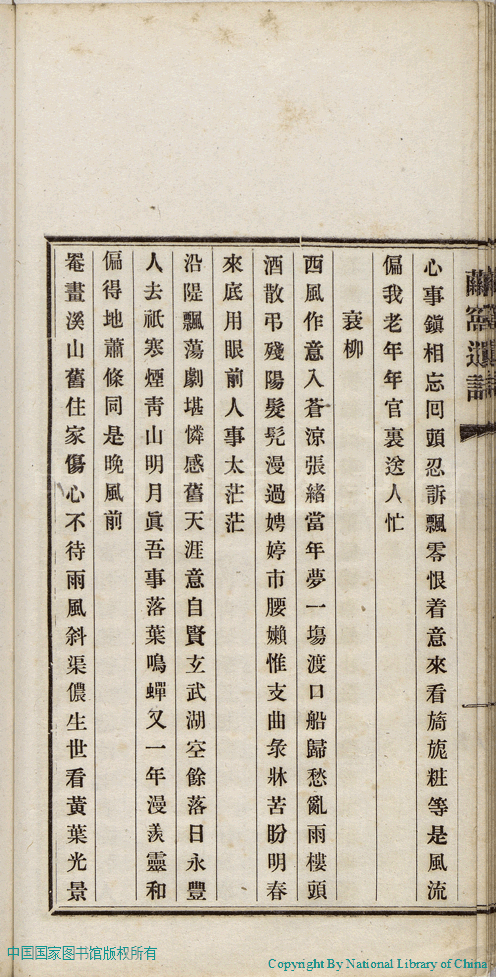 心事鎭相忘回頭忍訴飄零恨着意來看旖旎粧等是風流
偏我老年年官裏送人忙
衰柳
西風作意入蒼涼張緒當年夢一塲渡口船歸愁亂雨樓頭
酒散弔殘陽髮髠漫過娉婷市腰嬾惟支曲彔牀苦盼明春
來底用眼前人事太茫茫
沿隄飄蕩劇堪憐感舊天涯意自賢玄武湖空餘落日永豐
人去祇寒煙靑山明月眞吾事落葉鳴蟬又一年漫羨靈和
偏得地蕭條同是晚風前
罨畫溪山舊住家傷心不待雨風斜渠儂生世看黃葉光景
中国国家图书馆版权所有
Copyright By National Library of China